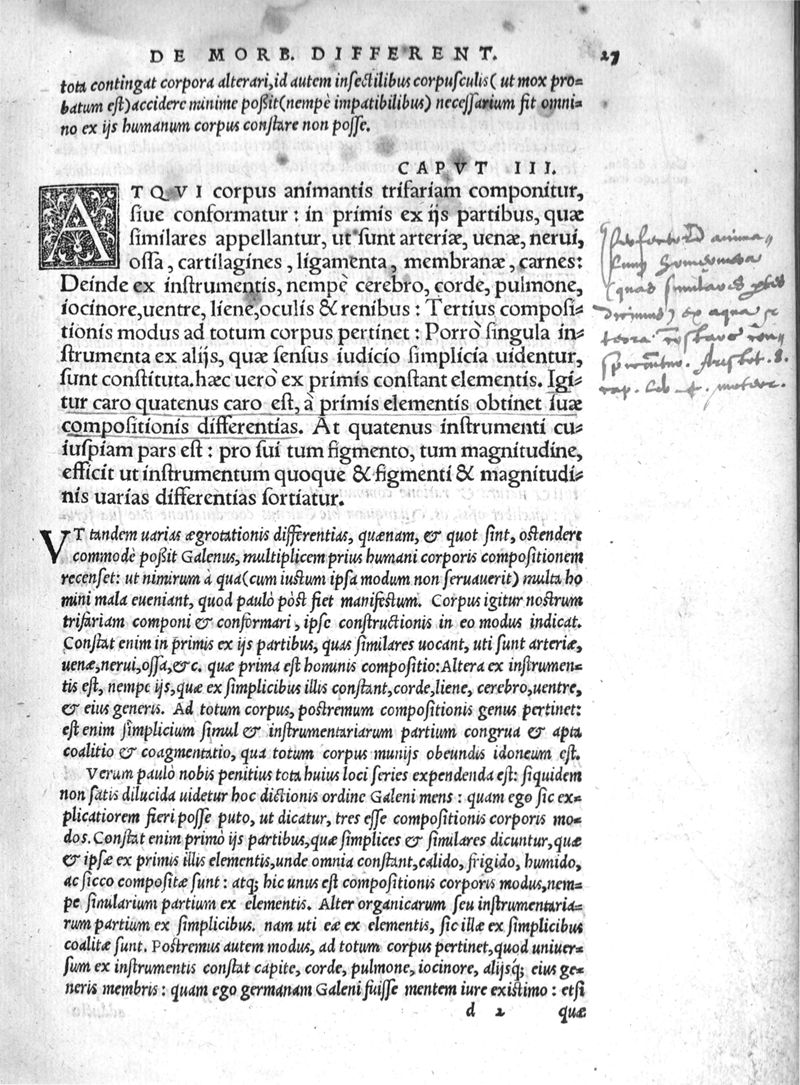 DE MORB. DIFFERENT. 27
tota contingat corpora alterari, id autem insectilibus corpusculis (ut mox pro-
batum est) accidere minime poßit (nempè impatibilibus) necessarium fit omni-
no ex ijs humanum corpus constare non posse.
CAPVT III.
ATQVI corpus animantis trifariam componitur,
siue conformatur: in primis ex ijs partibus, quæ
similares appellantur, ut sunt arteriæ, uenæ, nerui,
ossa, cartilagines, ligamenta, membranæ, carnes:
Deinde ex instrumentis, nempè cerebro, corde, pulmone,
iocinore, uentre, liene, oculis & renibus: Tertius composi-
tionis modus ad totum corpus pertinet: Porrò singula in-
strumenta ex alijs, quæ sensus iudicio simplicia uidentur,
sunt constituta. hæc uerò ex primis constant elementis. Igi-
tur caro quatenus caro est, à primis elementis obtinet suæ
compositionis differentias. At quatenus instrumenti cu-
iuspiam pars est: pro sui tum figmento, tum magnitudine,
efficit ut instrumentum quoque & figmenti & magnitudi-
nis uarias differentias sortiatur.
anima
(quas similares
dicimus) ex aqua
terra
Aristot. 8.
cap. lib. 4. meteor.
VT tandem uarias ægrotationis differentias, quænam, & quot sint, ostendere
commodè poßit Galenus, multiplicem prius humani corporis compositionem
recenset: ut nimirum à qua (cum iustum ipsa modum non seruauerit) multa ho
mini mala eueniant, quod paulò pòst fiet manifestum. Corpus igitur nostrum
trifariam componi & conformari, ipse constructionis in eo modus indicat.
Constat enim in primis ex ijs partibus, quas similares uocant, uti sunt arteriæ,
uenæ, nerui, ossa, &c. quæ prima est hominis compositio: Altera ex instrumen-
tis est, nempe ijs, quæ ex simplicibus illis constant, corde, liene, cerebro, uentre,
& eius generis. Ad totum corpus, postremum compositionis genus pertinet:
est enim simplicium simul & instrumentariarum partium congrua & apta
coalitio & coagmentatio, qua totum corpus munijs obeundis idoneum est.
Verum paulò nobis penitius tota huius loci series expendenda est: siquidem
non satis dilucida uidetur hoc dictionis ordine Galeni mens: quam ego sic ex-
plicatiorem fieri posse puto, ut dicatur, tres esse compositionis corporis mo-
dos. Constat enim primò ijs partibus, quæ simplices & similares dicuntur, quæ
& ipsæ ex primis illis elementis, unde omnia constant, calido, frigido, humido,
ac sicco compositæ sunt: atq; hic unus est compositionis corporis modus, nem-
pe similarium partium ex elementis. Alter organicarum seu instrumentaria-
rum partium ex simplicibus. nam uti eæ ex elementis, sic illæ ex simplicibus
coalitæ sunt. Postremus autem modus, ad totum corpus pertinet, quod uniuer-
sum ex instrumentis constat capite, corde, pulmone, iocinore, alijsq; eius ge-
neris membris: quam ego germanam Galeni fuisse mentem iure existimo: etsi
d 2 quæ